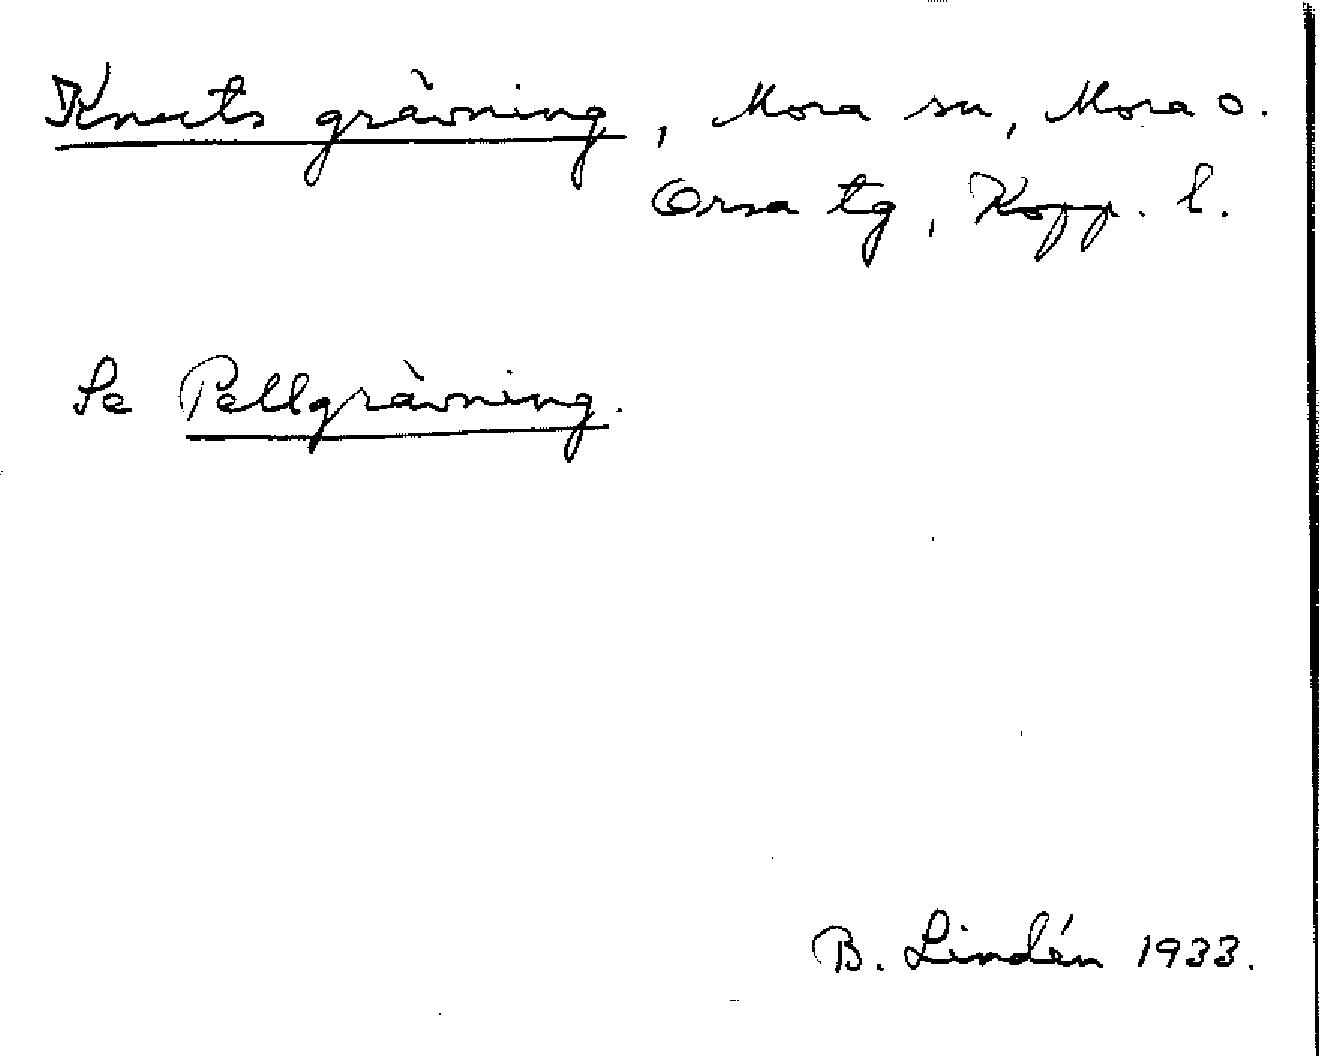 Knuts gràvning, Mora sn, Mora o.
Orsa tg, Kopp. l.
Se Pellgràvning.
B. Lindén 1933.